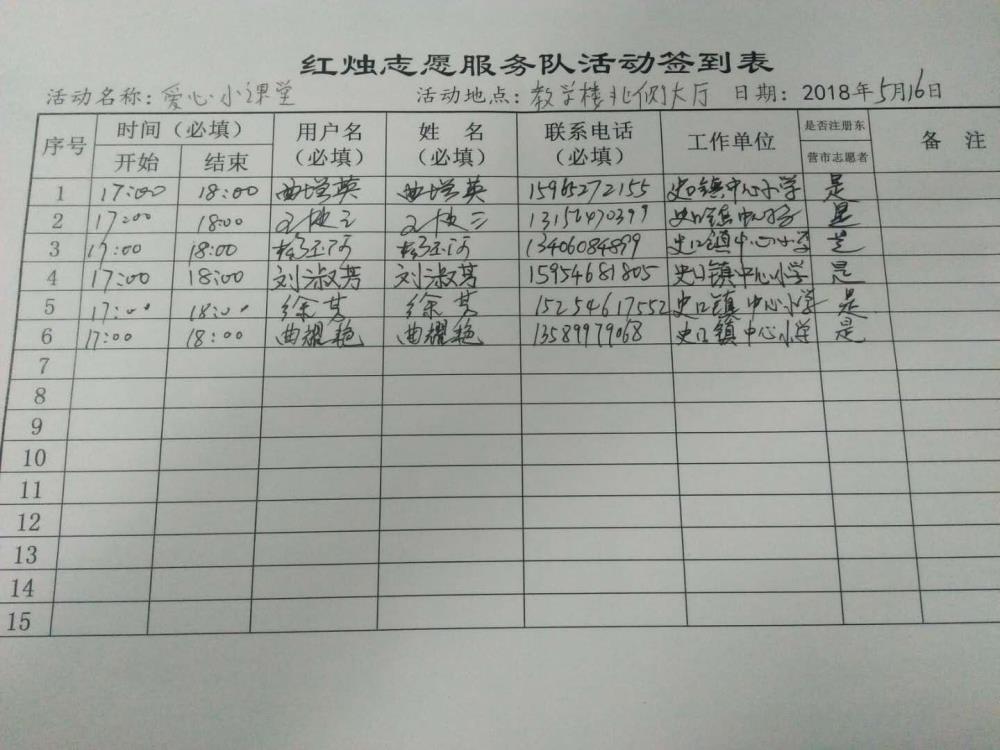 红烛志愿服务队活动签到表
活动名称：爱心小课堂 活动地点：教学楼北侧大厅 日期：2018年5月16日
序号 时间（必填） 用户名（必填） 姓名（必填） 联系电话（必填） 工作单位 是否注册东营市志愿者 备注
开始 结束
1 17:00 18:00 曲增英 曲增英 15965272155 史口镇中心小学 是
2 17:00 18:00 史口镇中心小学 是
3 17:00 18:00 13406084899 史口镇中心小学 是
4 17:00 18:00 刘淑芳 刘淑芳 15954681805 史口镇中心小学 是
5 17:00 18:00 徐芹 徐芹 15254617552 史口镇中心小学 是
6 17:00 18:00 曲耀艳 曲耀艳 13589979068 史口镇中心小学 是
7
8
9
10
11
12
13
14
15